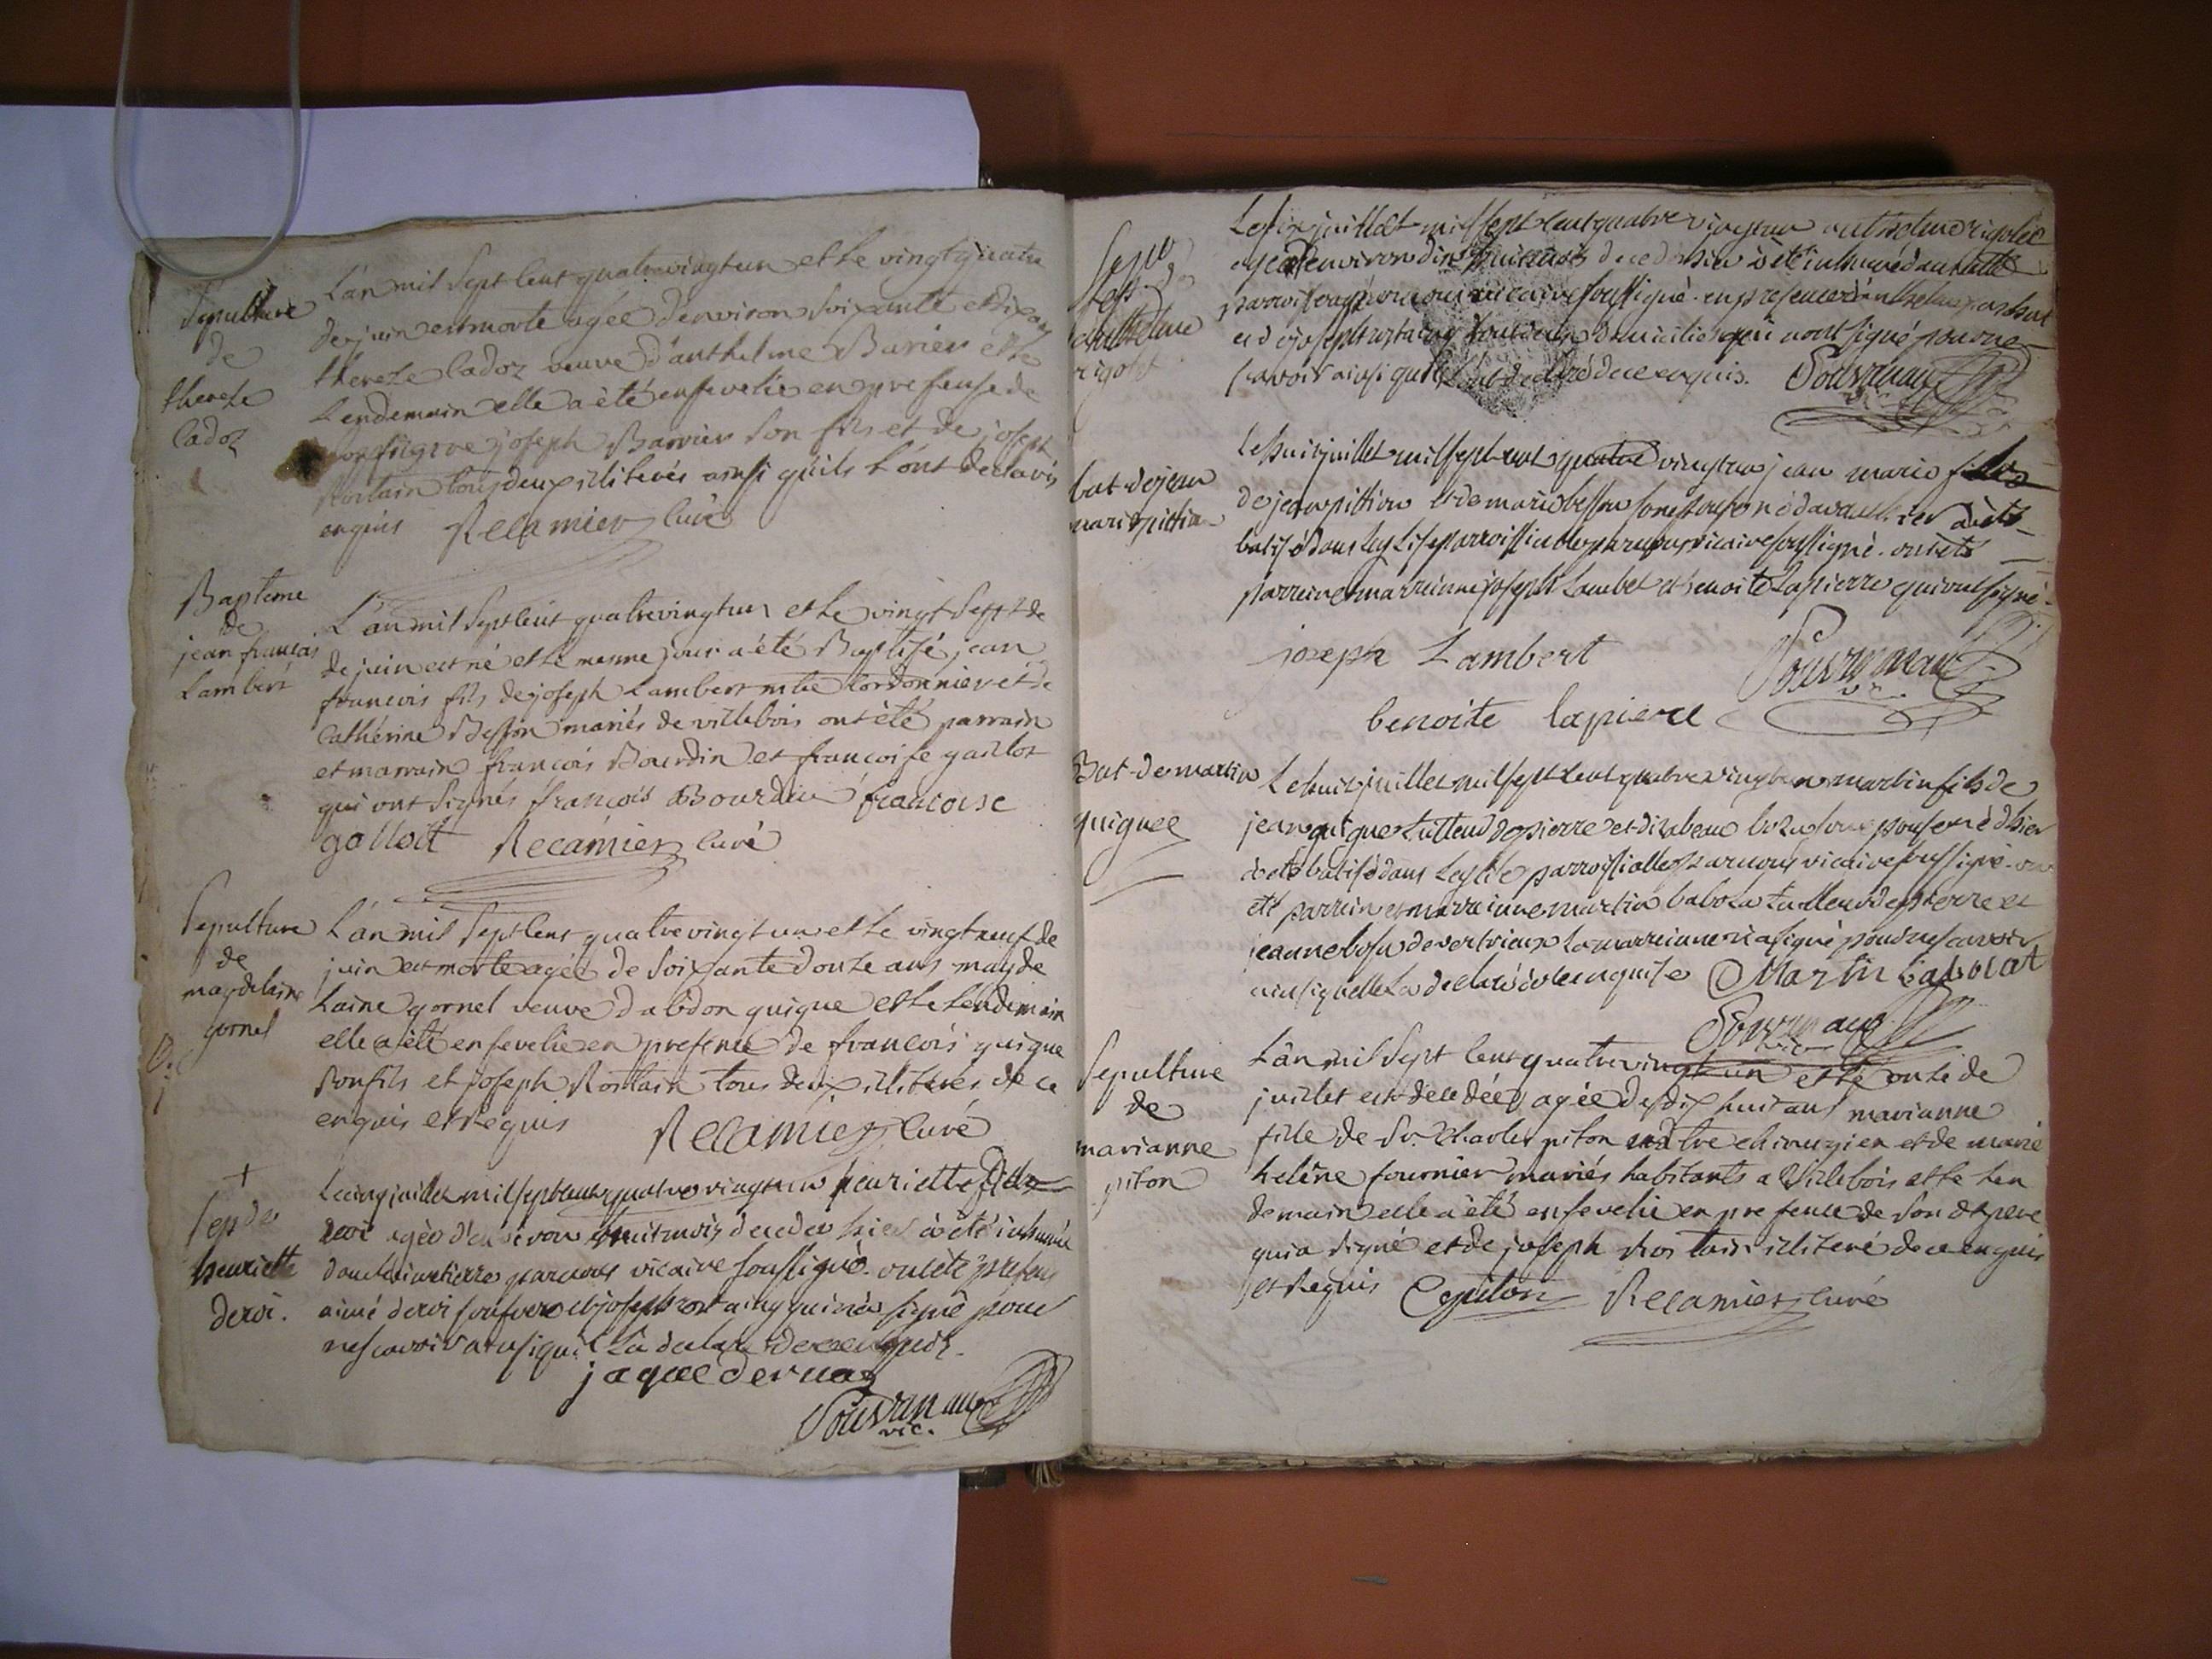 Sepulture
de
thereze
Cadoz
L'an mil Sept Cent quatrevingt un et le vingt quatre
de juin est morte agée d'environ Soixante et dix ans
thereze Cadoz veuve d'anthelme Barier et le
Lendemain elle a été ensevelie en presense de
joseph Barrier Son fils et de joseph
Rostain tous deux illiterés ainsi qu'ils L'ont declaré
enquis Recamier Curé
Bapteme
de
jean francois
Lambert
L'an mil Sept Cent quatrevingt un et le vingt Sept de
de juin est né et le mesme jour a été Baptisé jean
francois fils de joseph Lambert mtre Cordonnier et de
Cathérine Besson mariés de villebois ont été parrain
et marrain francois Bourdin et francoise gaillot
qui ont Signés francois Bourdin francoise
galloit Recamier Curé
Sepulture
de
magdelaine
gornel
L'an mil Sept Cent quatrevingt un et le vingt neuf de
juin est morte agée de Soixante douze ans magde
Laine gornel veuve d'abdon guigue et le Lendemain
elle a été ensevelie en presence de francois guigue
Son fils et joseph Rostain tous deux illiterés de ce
enquis et Requis Recamier Curé
+
Sep de
henriette
deroi.
Le cinq juillet mil sept cent quatre vingt un henriette fille
deroi agée d'environ huit mois decedée hier a été inhumée
dans le cimetierre par nous vicaire soussigné. ont été presens
aimé deroi son frere et joseph rostaing qui n'a signé pour
ne scavoir ainsi qu'il l'a declaré de ce enquis.
jaque deruaz
Souvrnaux
vic.
Sep
anthelme
rigolet
Le six juillet mil sept cent quatre vingt un anthelme rigolet
agé d'environ dix huit mois decedé hier a été inhumé dans cette
parroisse par nous vicaire soussigné. en presence d'anthelme
et de joseph rostaing tous deux domiciliés qui n'ont signé pour ne
scavoir ainsi qu'ils ont declaré de ce enquis. Souvrnaux
bat de jean
marie pittion
Le huit juillet mil sept cent quatre vingt un jean marie fils
de jean pittion et de marie besson son epouse né d'avant hier a été
batisé dans leglise parroissialle par nous vicaire soussigné. ont été
parrein et marreinne joseph Lambet et benoite Lapierre qui ont signé.
joseph Lambert Souvrnaux
benoite lapiere
Bat de martin
guigue
Le huit juillet mil sept cent quatre vingt un martin fils de
jean guigue tallend de pierre et d'izabeau bozu son epouse né d'hier
a été batisé dans leglise parroissialle par nous vicaire soussigné. ont
été parrein et marreinne martin babolat tallend de pierre et
jeanne bozu de vertrieux la marreinne n'a signé pour ne scavoir
ainsi quelle l'a declaré de ce enquise Martin babolat
Souvrnaux
Sepulture
de
marianne
piton
L'an mil Sept Cent quatrevingt un et le onze de
juillet est decedée agée de dix huit ans marianne
fille de Sr. Charles piton maitre chirurgien et de marie
helène fournier mariés habitants a Villebois et le Len
demain elle a été ensevelie en presence de Son dt pere
qui a Signé et de joseph Ros tain illiteré de ce enquis
et Requis Cpiton Recamier Curé